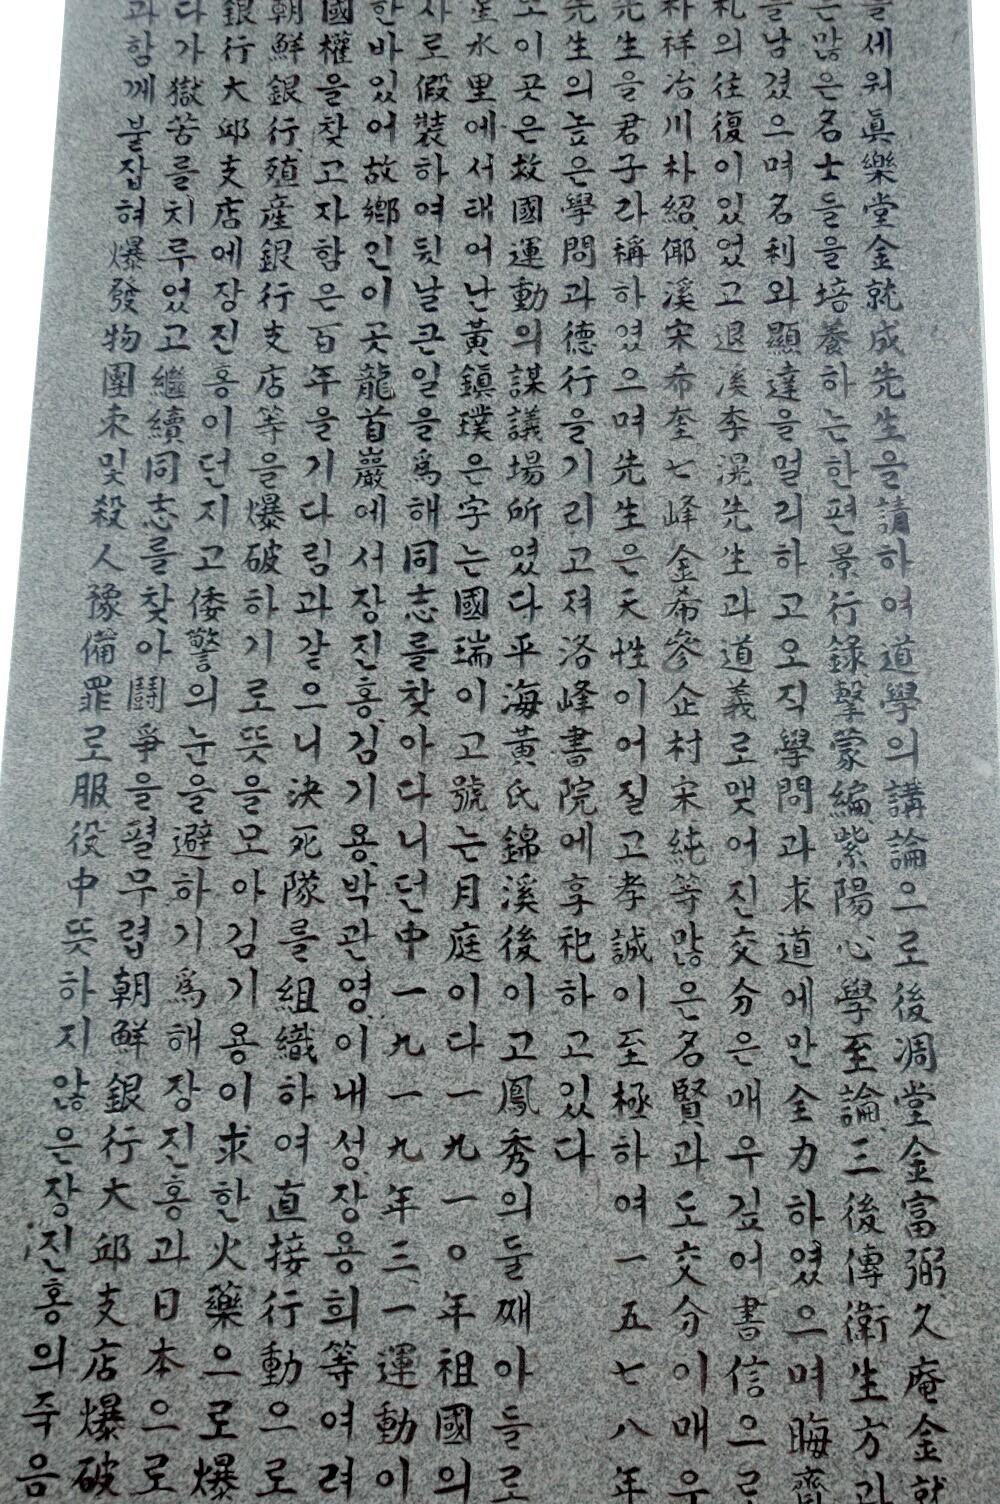 세워眞樂堂金就成先生을請하여道學의講論으로後凋堂金富弼久庵金就
은많은名士들을培養하는한편景行錄,擊蒙編,紫陽心學至論,三後傳衛生方과
남겼으며名利와顯達을멀리하고오직學問과求道에만全力하였으며晦齋
札의往復이있었고退溪李滉先生과道義로맺어진交分은매우깊어書信으로
朴祥,冶川朴紹,倻溪宋希奎七峰金希參企村宋純等많은名賢과도交分이매우
先生을君子라稱하였으며先生은天性이어질고孝誠이至極하여一五七八年
先生의높은學問과德行을기리고져洛峰書院에享祀하고있다
또이곳은救國運動의謀議場所였다平海黃氏錦溪後이고鳳秀의둘째아들로
水里에서태어난黃鎭璞은字는國瑞이고號는月庭이다一九一○年祖國의
사로假裝하여뒷날큰일을爲해同志를찾아다니던中一九一九年三一運動이
한바있어故鄕인이곳龍首巖에서장진홍,김기용,박관영이내성,장용희等여려
國權을찾고자함은百年을기다림과같으니決死隊를組織하여直接行動으로
朝鮮銀行,殖産銀行支店等을爆破하기로뜻을모아김기용이求한火藥으로爆
銀行大邱支店에장진홍이던지고倭警의눈을避하기爲해장진홍과日本으로
다가獄苦를치루었고繼續同志를찾아鬪爭을펼무렵朝鮮銀行大邱支店爆破
과함께붙잡혀爆發物團束및殺人豫備罪로服役中뜻하지않은장진홍의죽음